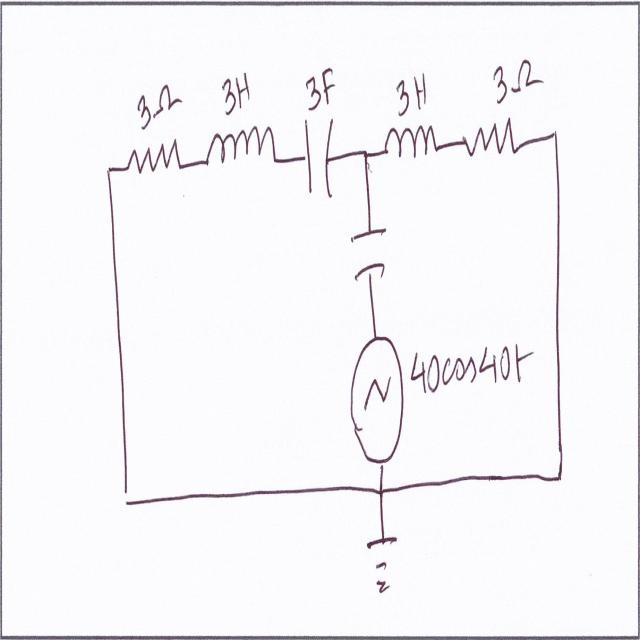 3Ω 3H 3F 3H 3Ω
40cos40t